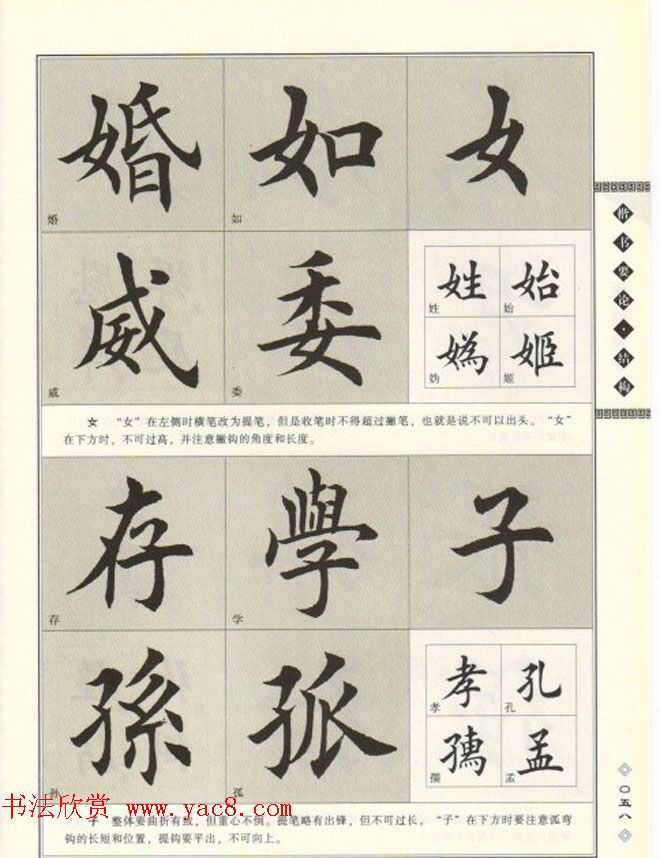 婚 如 女
婚 如
威 委 姓 始
威 委 姓 始
媯 姬
妫 姬
女 “女”在左侧时横笔改为提笔,但是收笔时不得超过撇笔,也就是说不可以出头。“女”
在下方时,不可过高,并注意撇钩的角度和长度。
存 學 子
存 学
孫 孤 孝 孔
孙 孤 孝 孔
孟
孺 孟
子 整体要曲折有致,但重心不倒。提笔略有出锋,但不可过长。“子”在下方时要注意弧弯
钩的长短和位置,提钩要平出,不可向上。
楷书要论·结构
〇五八
书法欣赏 www.yac8.com